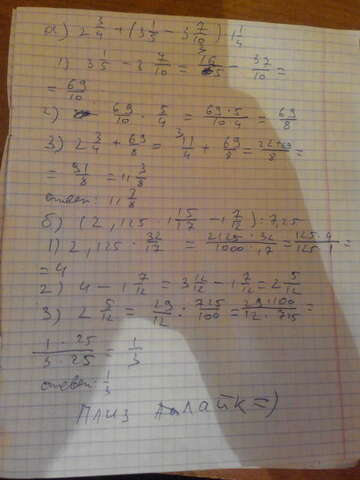 а) 2 3/4 + (3 1/5 - 3 7/10) · 1 1/4
1) 3 1/5 - 3 7/10 = 16/5 - 37/10 =
= 69/10
2) 69/10 · 5/4 = 69·5/10·4 = 69/8
3) 2 3/4 + 69/8 = 11/4 + 69/8 = 22+69/8 =
= 91/8 = 11 3/8
ответ: 11 3/8
б) (2,125 · 1 15/17 - 1 7/12) : 7,25
1) 2,125 · 32/17 = 2125·32/1000·17 = 125·4/125·1 =
= 4
2) 4 - 1 7/12 = 3 12/12 - 1 7/12 = 2 5/12
3) 2 5/12 = 29/12 : 725/100 = 29·100/12·725 =
1·25/3·25 = 1/3
ответ: 1/3
Плиз лайк =)